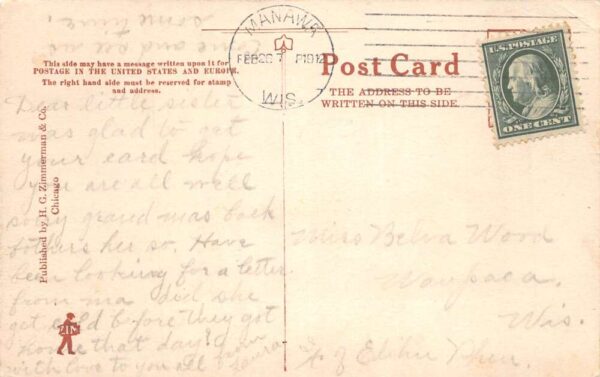 come and see us
some time.
MANAWA
FEB 26 7 P 1912
WIS.
This side may have a message written upon it for
POSTAGE IN THE UNITED STATES AND EUROPE.
The right hand side must be reserved for stamp
and address.
Post Card
THE ADDRESS TO BE
WRITTEN ON THIS SIDE.
U.S. POSTAGE
ONE CENT
Published by H. G. Zimmerman & Co.
Chicago
ZIM
Dear little sister
was glad to get
your card hope
you are all well
sorry grand mas back
bothers her so. Have
been looking for a letter
from ma did she
get cold before they got
home that day?
with love to you all from
Laura
Miss Belva Wood
Waupaca,
Wis.
of Elihu